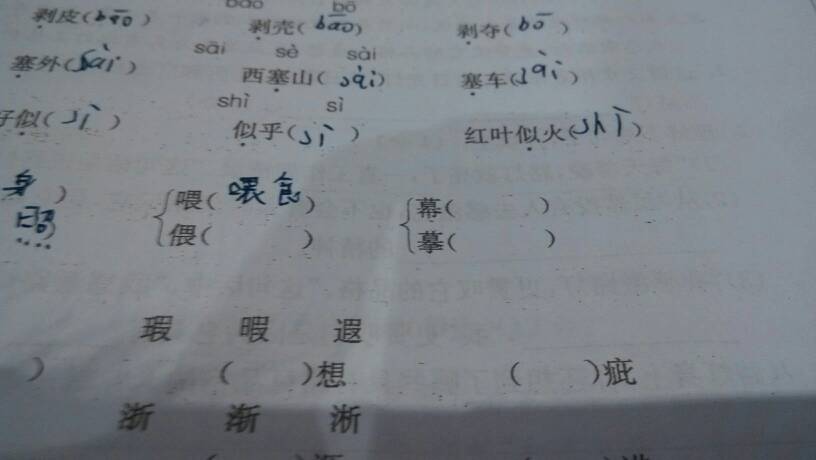 bāo bō
剥皮(bāo) 剥壳(bāo) 剥夺(bō)
sāi sè sài
塞外(sài) 西塞山(sài) 塞车(sāi)
shì sì
好似(sì) 似乎(sì) 红叶似火(shì)
身) 喂(喂食) 幕( )
偎( ) 摹( )
瑕 暇 遐
) ( )想 ( )疵
浙 渐 淅